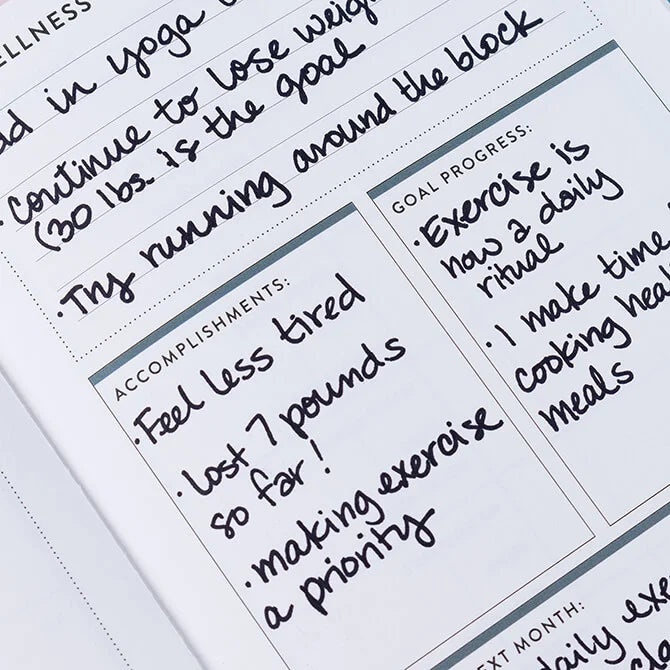 ELLNESS
dd in yoga
· Continue to lose weigh
(30 lbs. is the goal
· Try running around the block
ACCOMPLISHMENTS:
· Feel less tired
· Lost 7 pounds
so far!
· making exercise
a priority
GOAL PROGRESS:
· Exercise is
now a daily
ritual
· I make time
cooking heal
meals
EXT MONTH:
daily exe